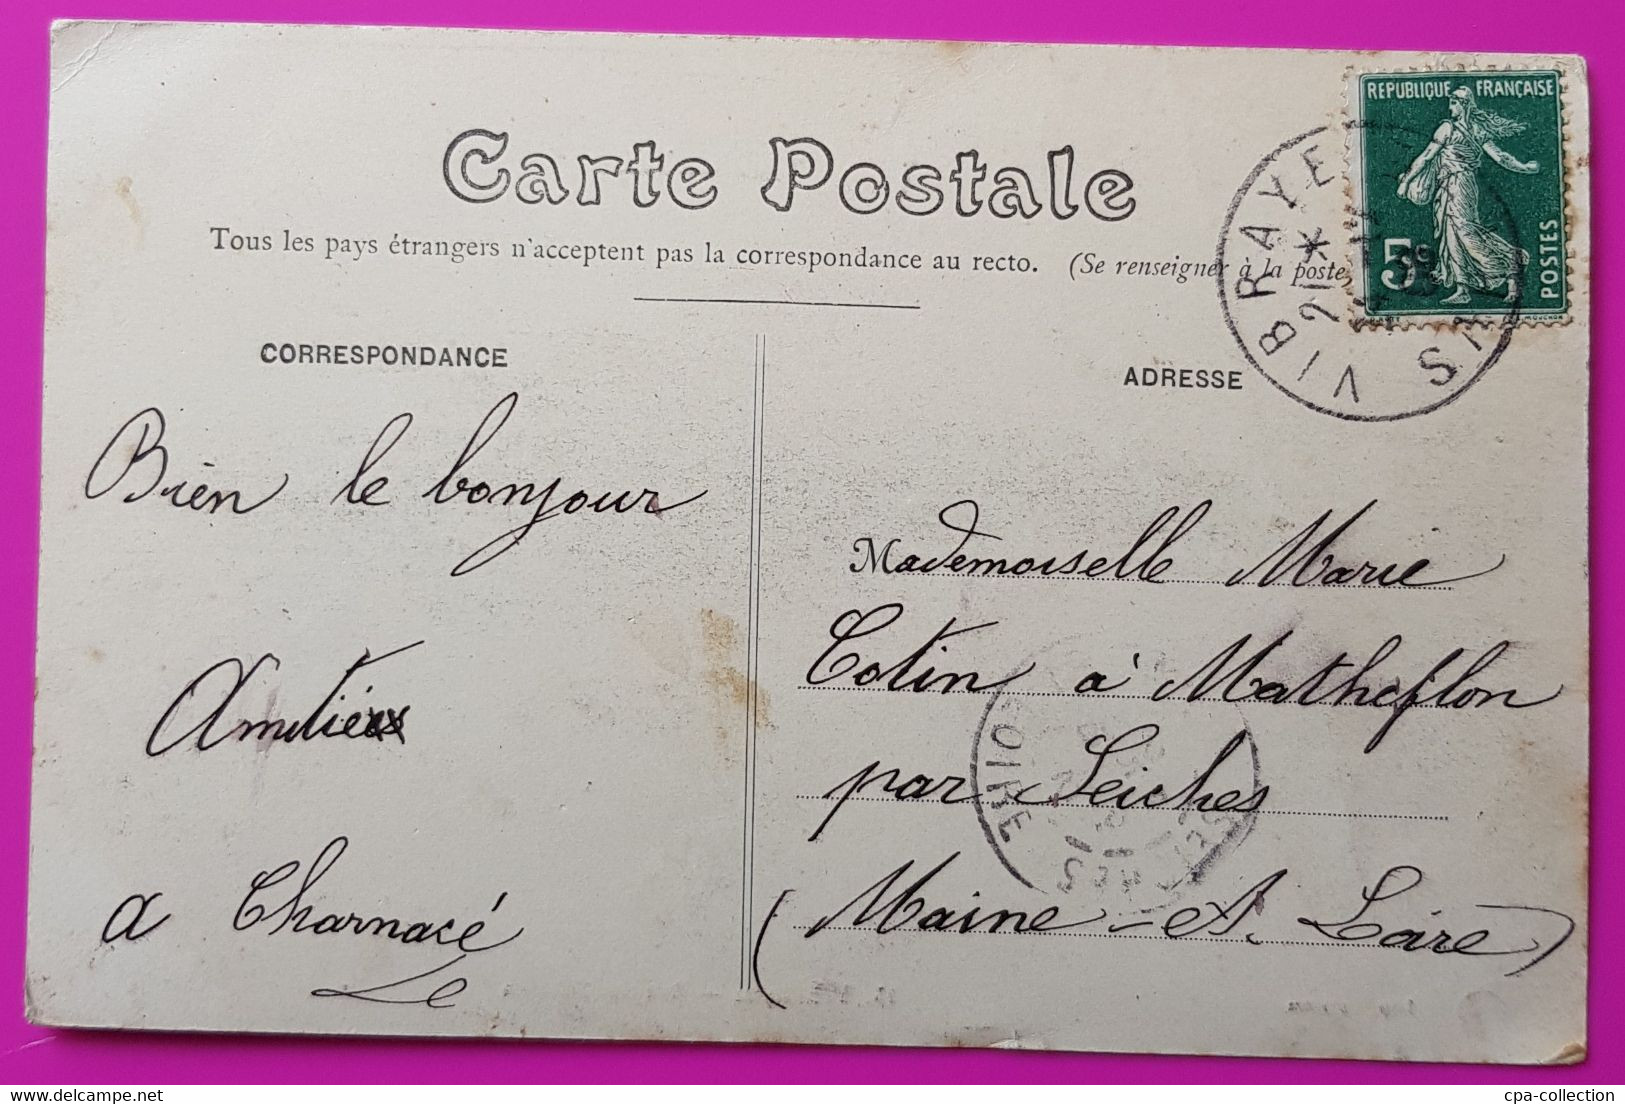 Carte Postale
Tous les pays étrangers n'acceptent pas la correspondance au recto. (Se renseigner à la poste
REPUBLIQUE FRANÇAISE
5
POSTES
VIBRAYE
21 *
CORRESPONDANCE
ADRESSE
Bien le bonjour
Amitié
a Charnacé
Mademoiselle Marie
Cotin à Matheflon
par Seiches
(Maine-et. Loire)
LOIRE
cpa-collection